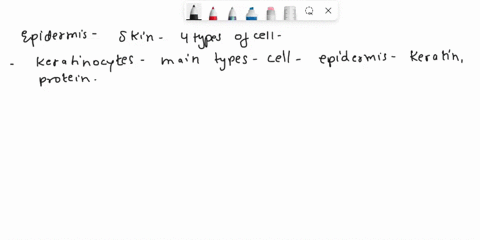 Epidermis - skin - 4 types of cell -
- Keratinocytes - main types - cell - epidermis - Keratin,
protein.